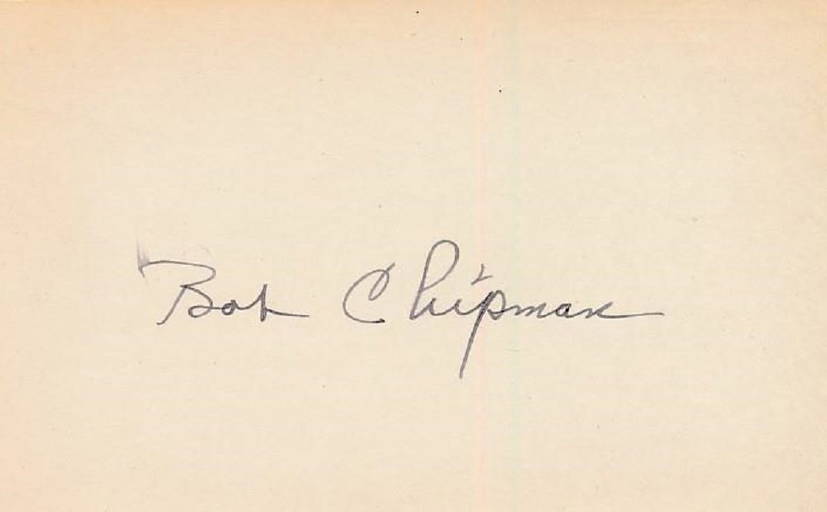 Bob Chipman